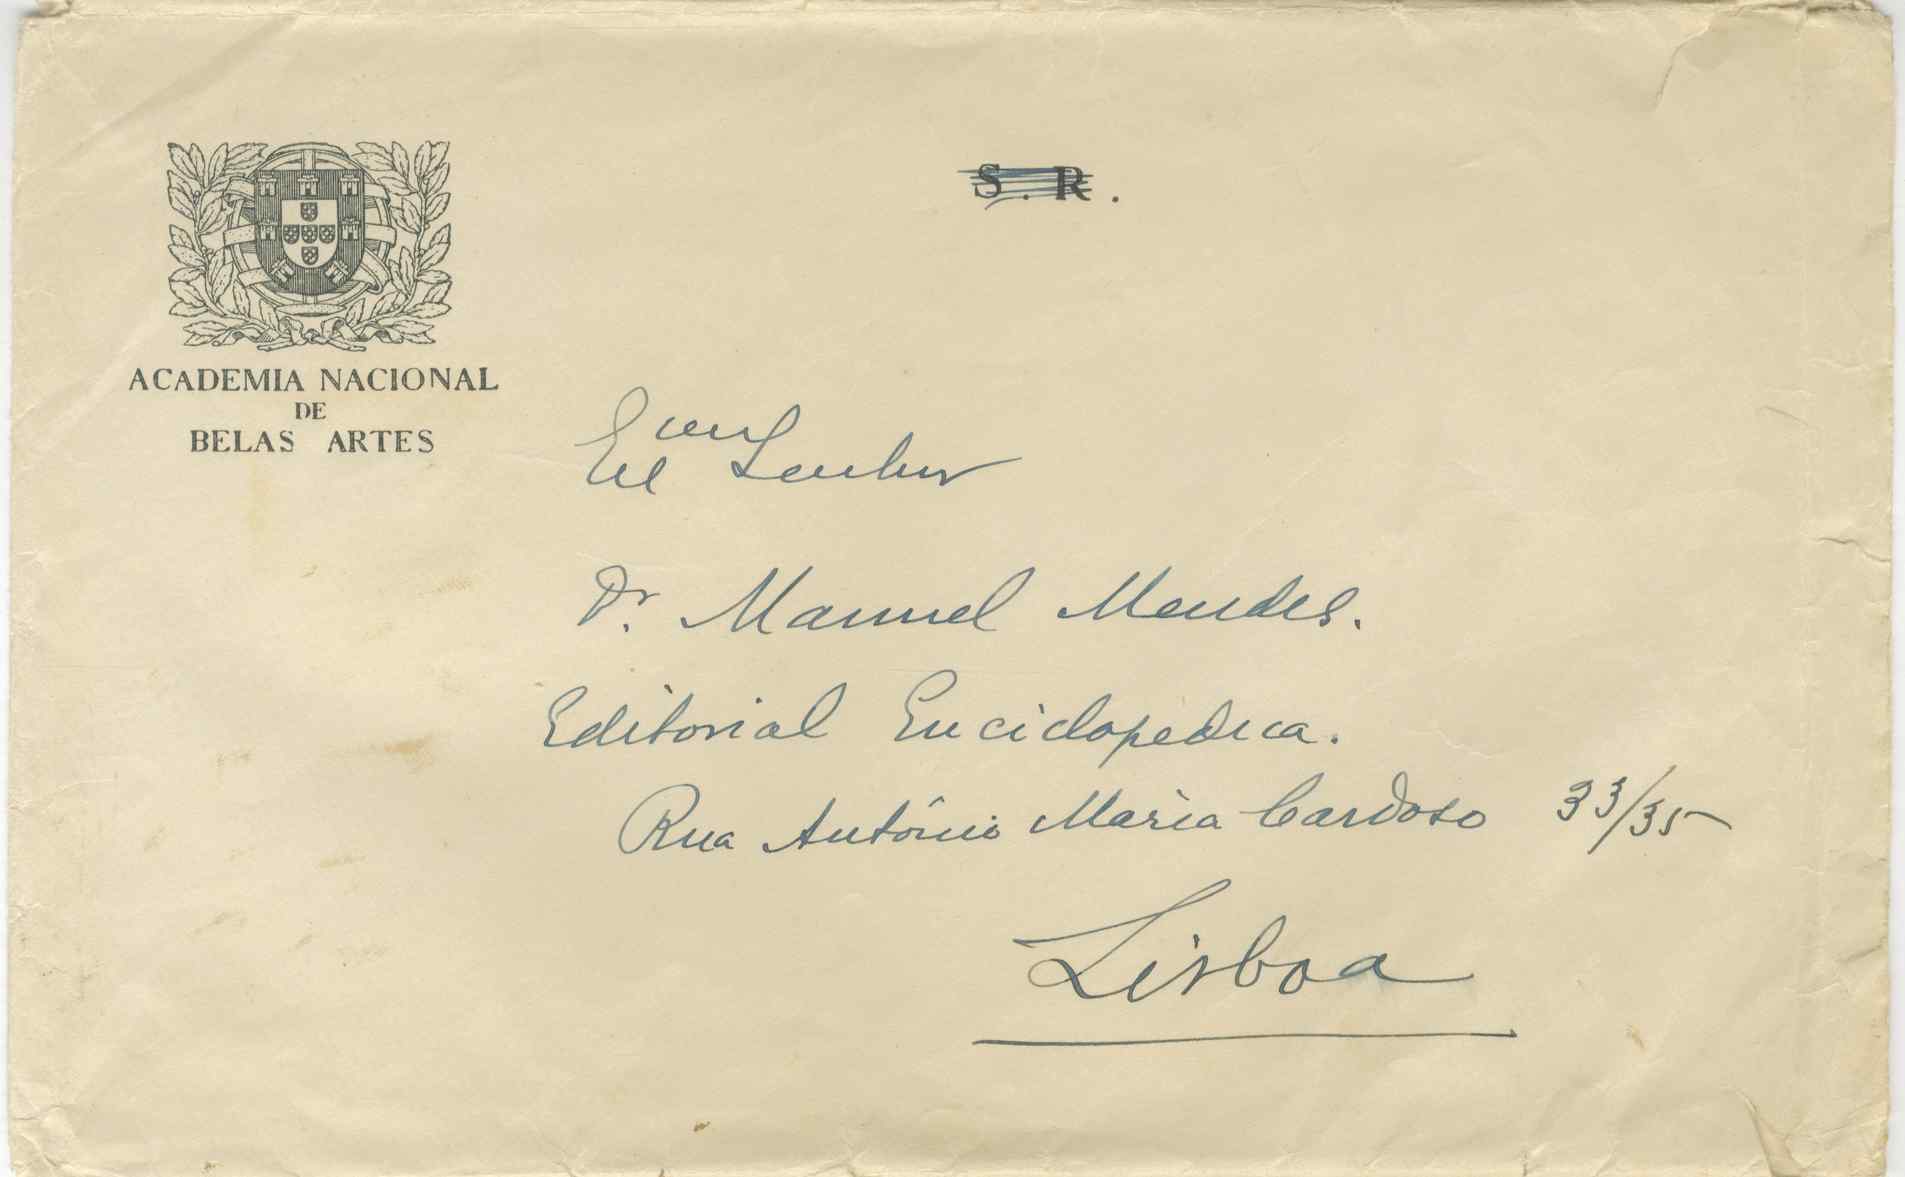 S. R.
ACADEMIA NACIONAL
DE
BELAS ARTES
Exᵐᵒ Senhor
Dr. Manuel Mendes.
Editorial Enciclopedica.
Rua António Maria Cardoso 33/35
Lisboa